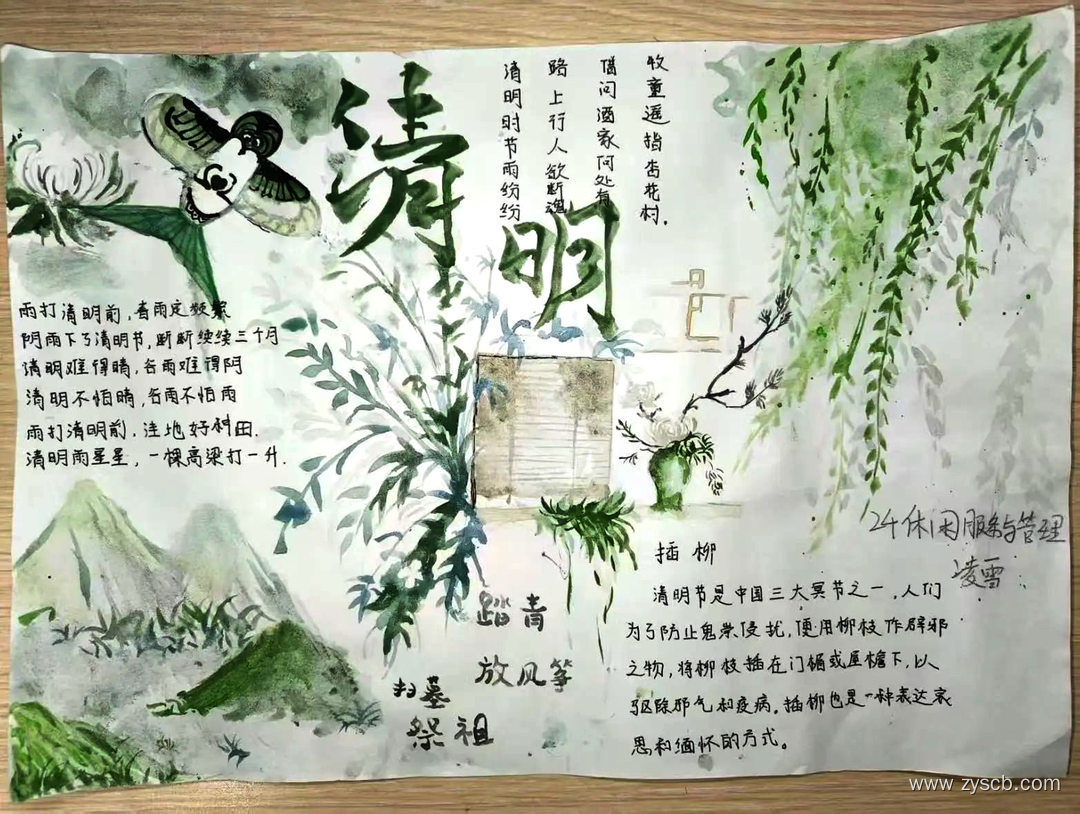 清明
清明时节雨纷纷
路上行人欲断魂
借问酒家何处有
牧童遥指杏花村.
雨打清明前,春雨定频繁
阴雨下了清明节,断断续续三个月
清明难得晴,谷雨难得阴
清明不怕晴,谷雨不怕雨
雨打清明前,洼地好种田.
清明雨星星,一棵高粱打一升.
24休闲服务与管理
凌雪
插柳
清明节是中国三大冥节之一,人们
为了防止鬼祟侵扰,便用柳枝作辟邪
之物,将柳枝插在门楣或屋檐下,以
驱除邪气和疫病。插柳也是一种表达哀
思和缅怀的方式。
踏青
放风筝
扫墓
祭祖
www.zyscb.com